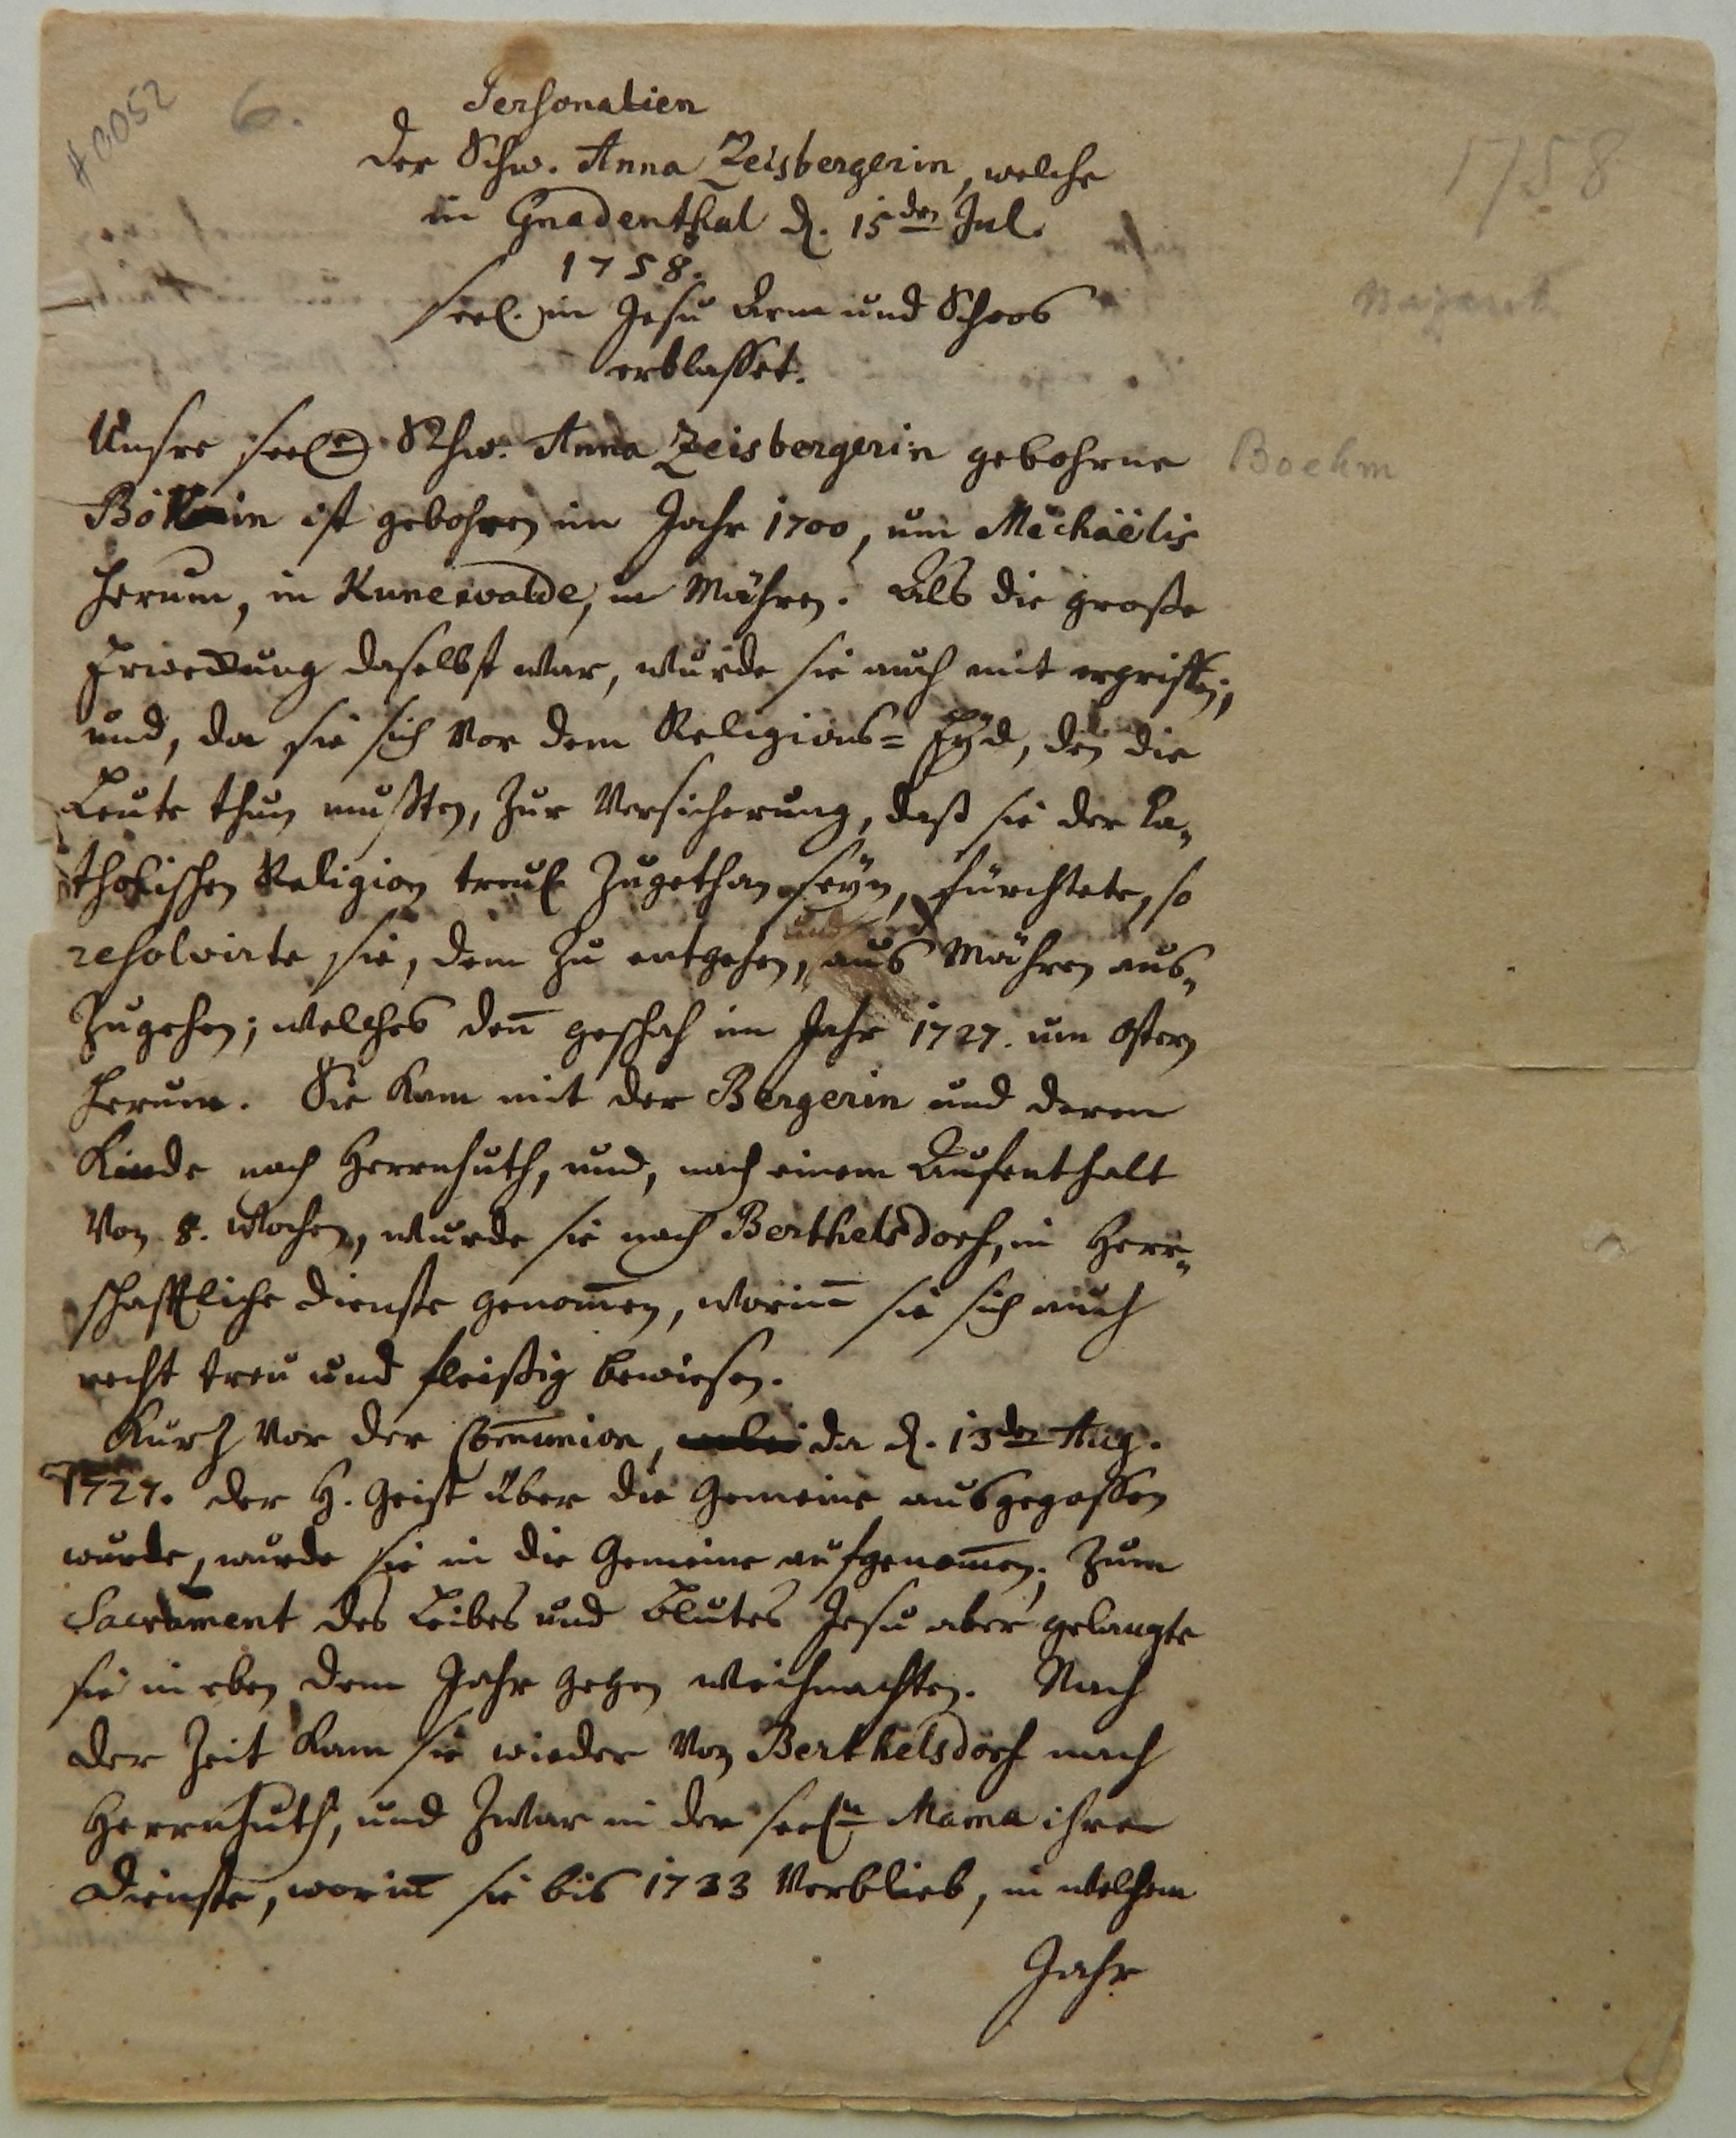 #0052 6.
Personalien
der Schw. Anna Zeisbergerin, welche
in Gnadenthal d. 15den Jul.
1758.
seel. in Jesu Arm und Schoos
erblasset.
1758
Nazareth
Unsre seele Schw. Anna Zeisbergerin gebohrne Boehm
ist gebohren im Jahr 1700, um Michaëlis
herum, in Kunewalde, in Mähren. Als die große
Erweckung daselbst war, wurde sie auch mit ergriffen;
und, da sie sich vor dem Religions= Eyd, den die
Leute thun mußten, zur Versicherung, daß sie der Ca„
tholischen Religion treul. zugethan seyn, fürchtete, so
resolvirte sie, dem zu entgehen, und aus Mähren aus„
zugehen; welches den̅ geschah im Jahr 1727. um Ostern
herum. Sie kam mit der Bergerin und deren
Kinde nach Herrnhuth, und, nach einem Aufenthalt
von 8. Wochen, wurde sie nach Berthelsdorf, in Herr„
schaftliche Dienste genom̅en, worin̅ sie sich auch
recht treu und fleißig bewiesen.
Kurz vor der Com̅union, da d. 13den Aug.
1727. der H. Geist über die Gemeine ausgegossen
wurde, wurde sie in die Gemeine aufgenom̅en; Zum
Sacrament des Leibes und Blutes Jesu aber gelangte
sie in eben dem Jahr gegen Weihnachten. Nach
der Zeit kam sie wieder von Berthelsdorf nach
Herrnhuth, und zwar in der seeln Mama ihre
Dienste, worin̅ sie bis 1733 verblieb, in welchem
Jahr